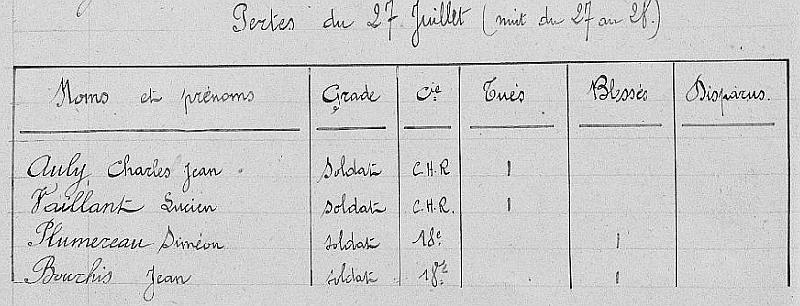 Pertes du 27 Juillet (nuit du 27 au 28.)
Noms et prénoms Grade Cie Tués Blessés Disparus.
Auly Charles Jean Soldat C.H.R 1
Vaillant Lucien Soldat C.H.R. 1
Plumereau Siméon soldat 18e 1
Bourhis Jean soldat 18e 1